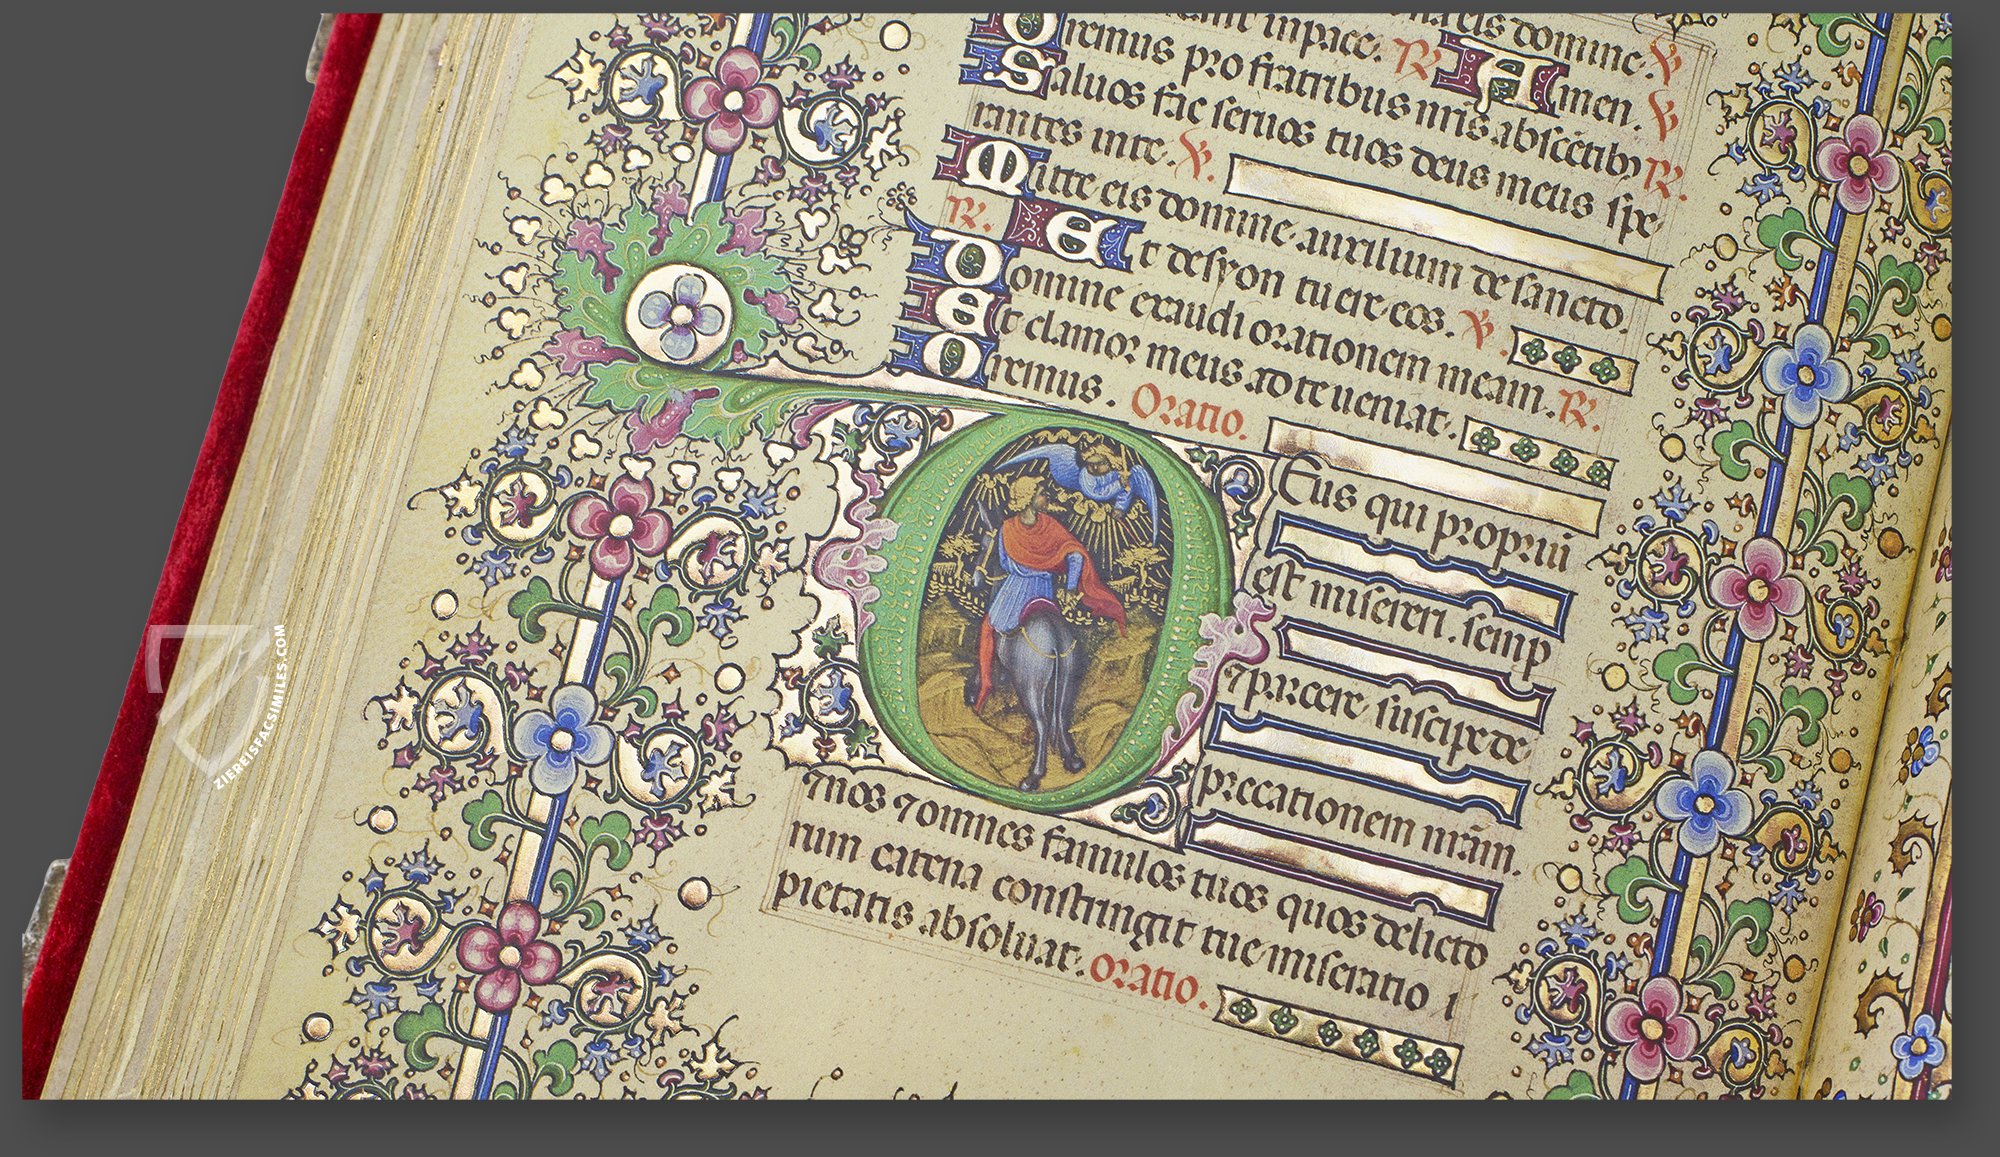 eis domine. V
Oremus pro fratribus nris abscẽtibꝫ R.
ant in pace. R. Amen. V
Saluos fac seruos tuos deus meus spe
rantes in te. V.
Mitte eis domine auxilium de sancto.
R. Et desyon tuere eos. V.
Domine exaudi orationem meam. R.
Et clamor meus ad te ueniat.
Oremus. Oratio.
Deus qui proprui
est misereri. semp
⁊ parcere suscipe de
precationem nrãm.
⁊ nos ⁊ omnes famulos tuos quos delicto
rum catena constringit tue miseratio
pietatis absoluat. Oratio.
ZIEREISFACSIMILES.COM